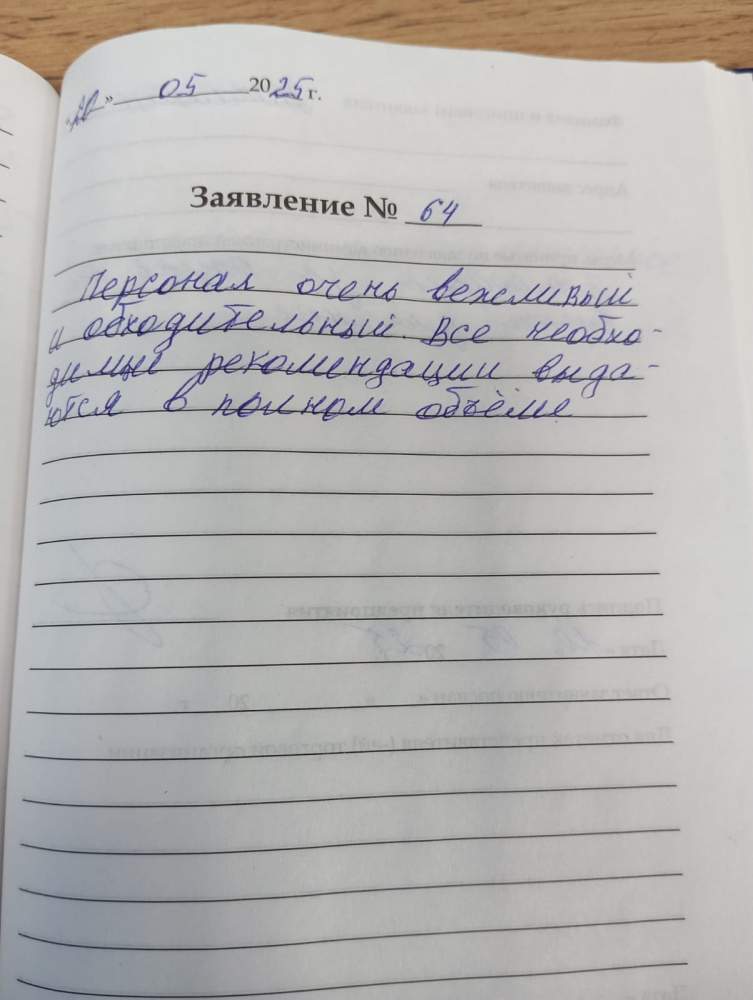 «20» 05 2025 г.
Заявление № 64
Персонал очень вежливый
и обходительный. Все необхо-
димые рекомендации выда-
ются в полном объёме